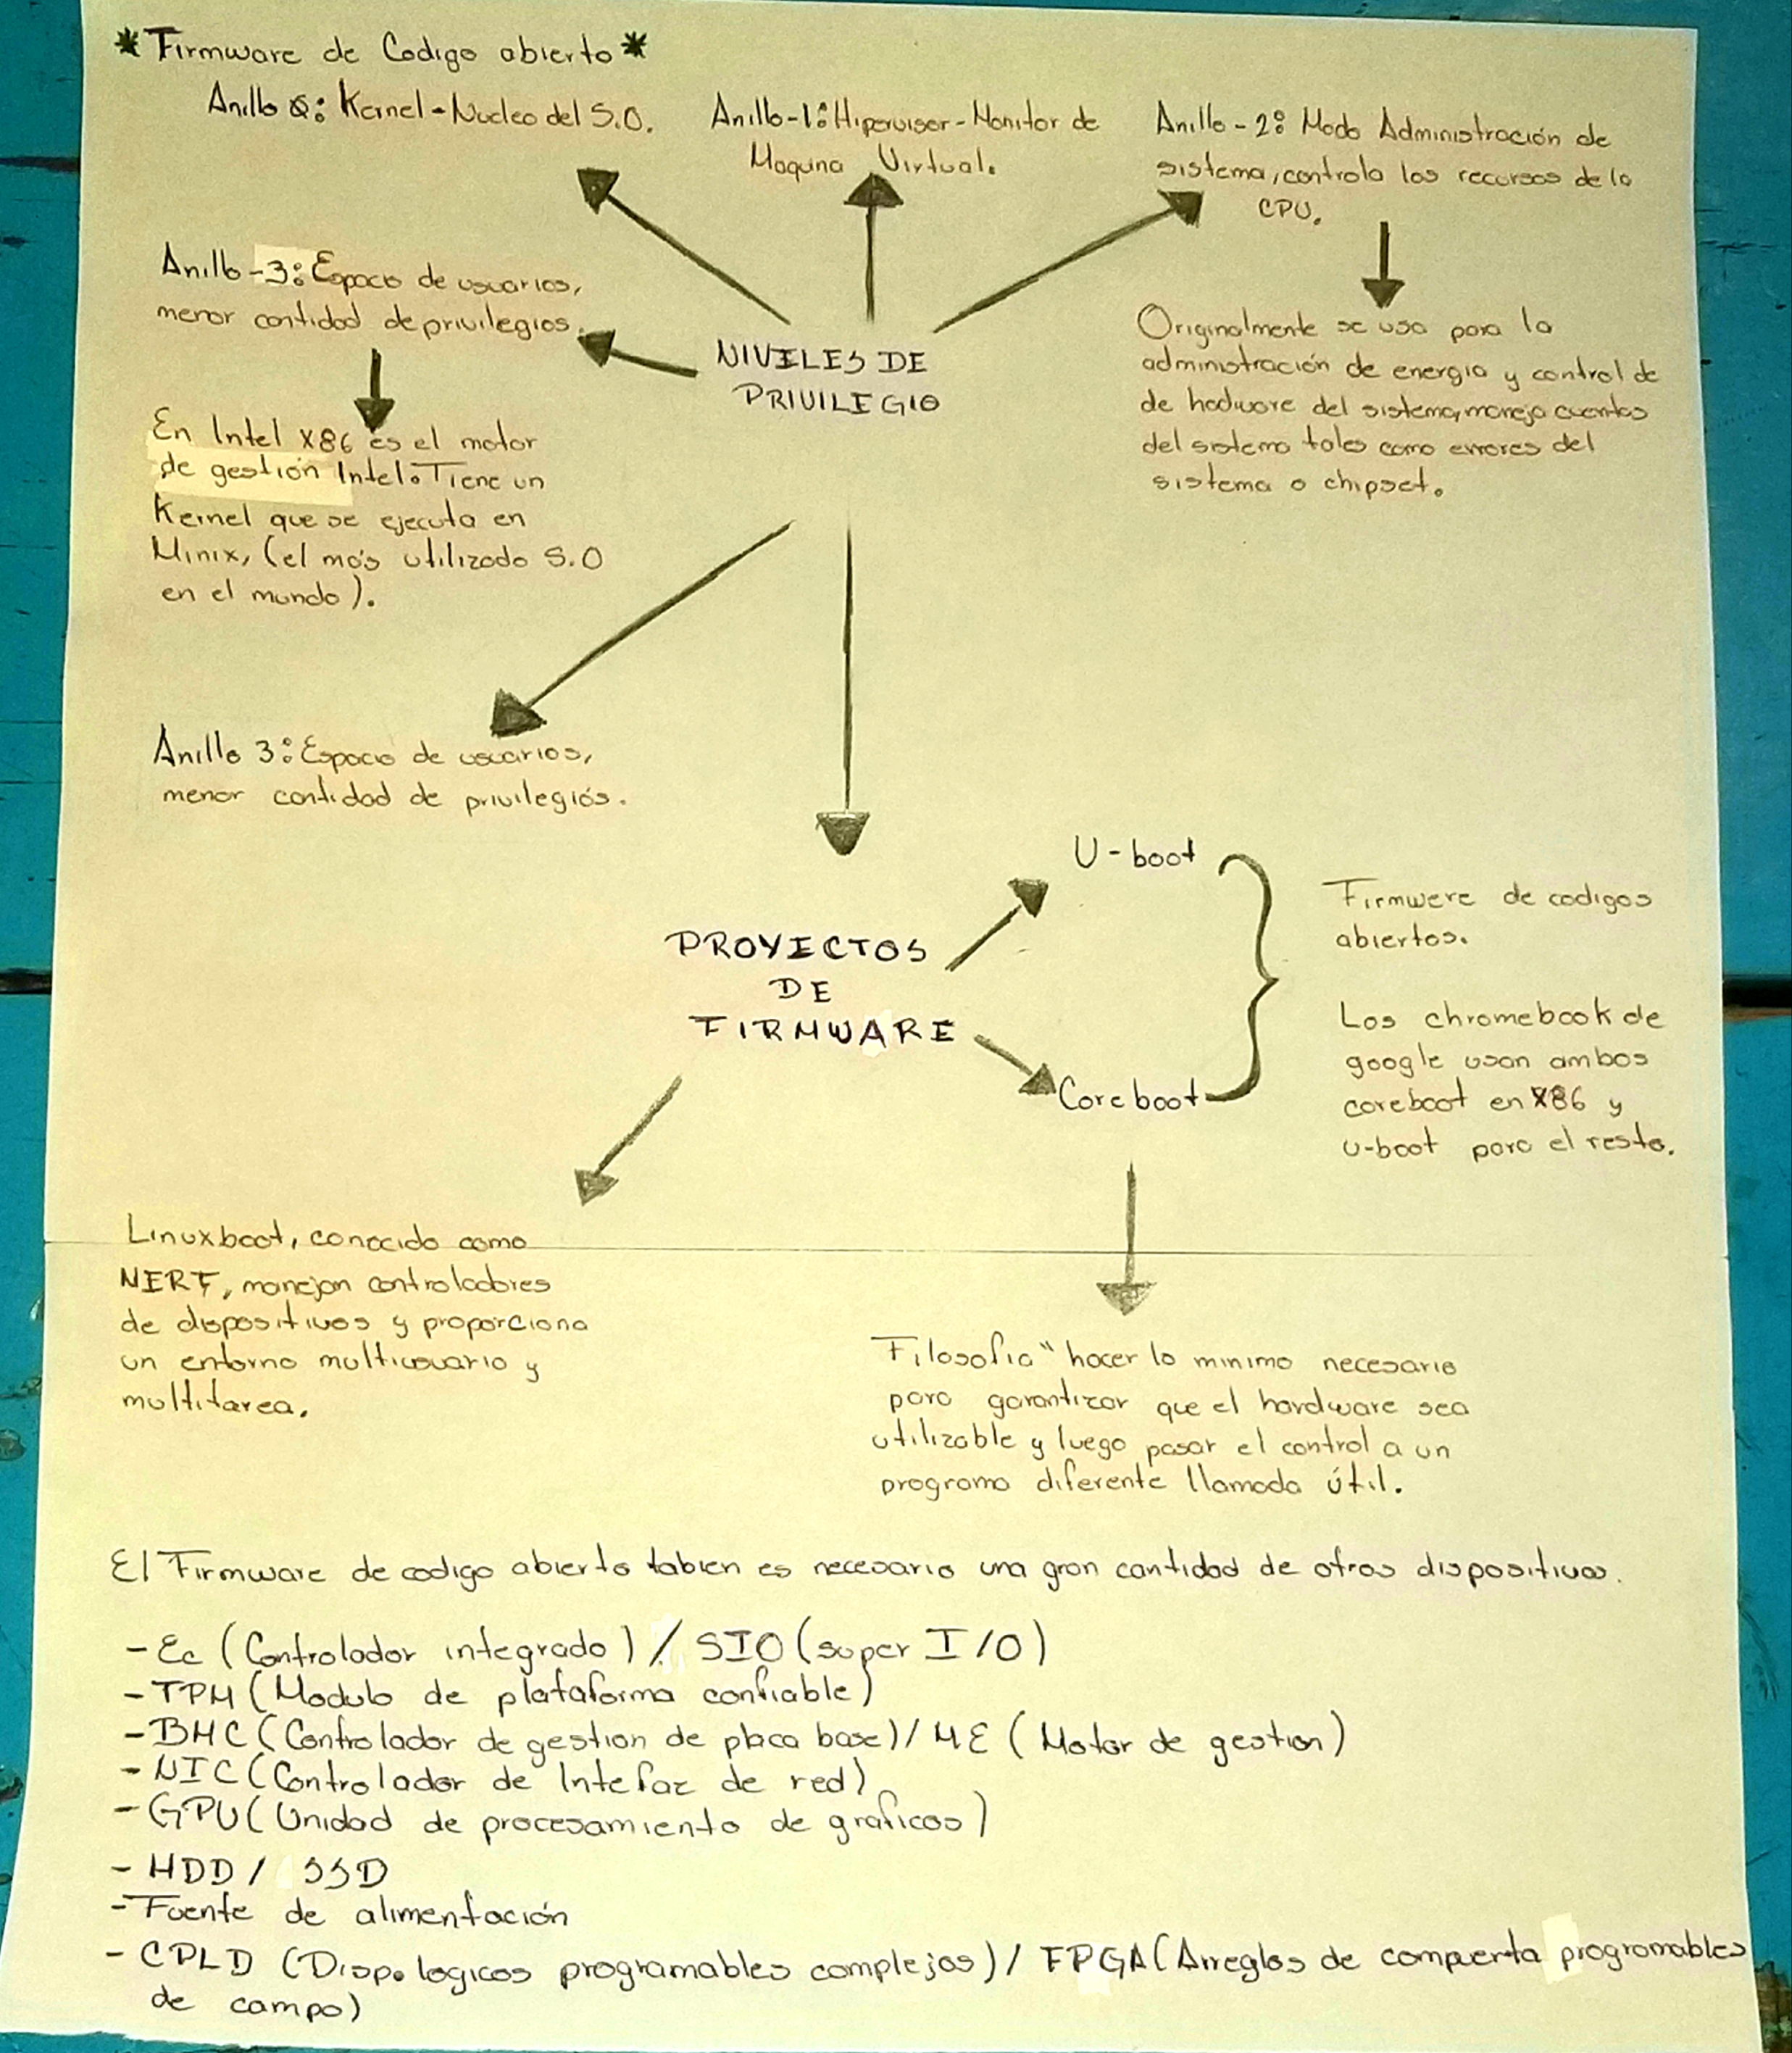 *Firmware de Codigo abierto*
Anillo 0: Kernel-Nucleo del S.O.
Anillo-1: Hipervisor-Monitor de
Maquina Virtual.
Anillo-2: Modo Administración de
sistema, controla los recursos de la
CPU.
Originalmente se uso para la
administración de energia y control de
de hadware del sistema, maneja eventos
del sistema tales como errores del
sistema o chipset.
Anillo-3: Espacio de usuarios,
menor cantidad de privilegios.
En Intel X86 es el motor
de gestión Intel. Tiene un
Kernel que se ejecuta en
Minix, (el más utilizado S.O
en el mundo).
NIVILES DE
PRIVILEGIO
Anillo 3: Espacio de usuarios,
menor cantidad de privilegiós.
PROYECTOS
DE
FIRMWARE
U-boot
Coreboot
Firmwere de codigos
abiertos.
Los chromebook de
google usan ambos
coreboot en X86 y
U-boot para el resto.
Linuxboot, conocido como
NERF, manejan controladores
de dispositivos y proporciona
un entorno multiusuario y
multitarea.
Filosofia "hacer lo minimo necesario
para garantizar que el hardware sea
utilizable y luego pasar el control a un
programa diferente llamada útil.
El Firmware de codigo abierto tabien es necesario una gran cantidad de otros dispositivos.
- Ec (Controlador integrado) / SIO (super I/O)
- TPM (Modulo de plataforma confiable)
- BMC (Controlador de gestion de placa base) / ME (Motor de gestion)
- NIC (Controlador de Intefaz de red)
- GPU (Unidad de procesamiento de graficos)
- HDD / SSD
- Fuente de alimentación
- CPLD (Disp. logicos programables complejos) / FPGA (Arreglos de compuerta programables
de campo)